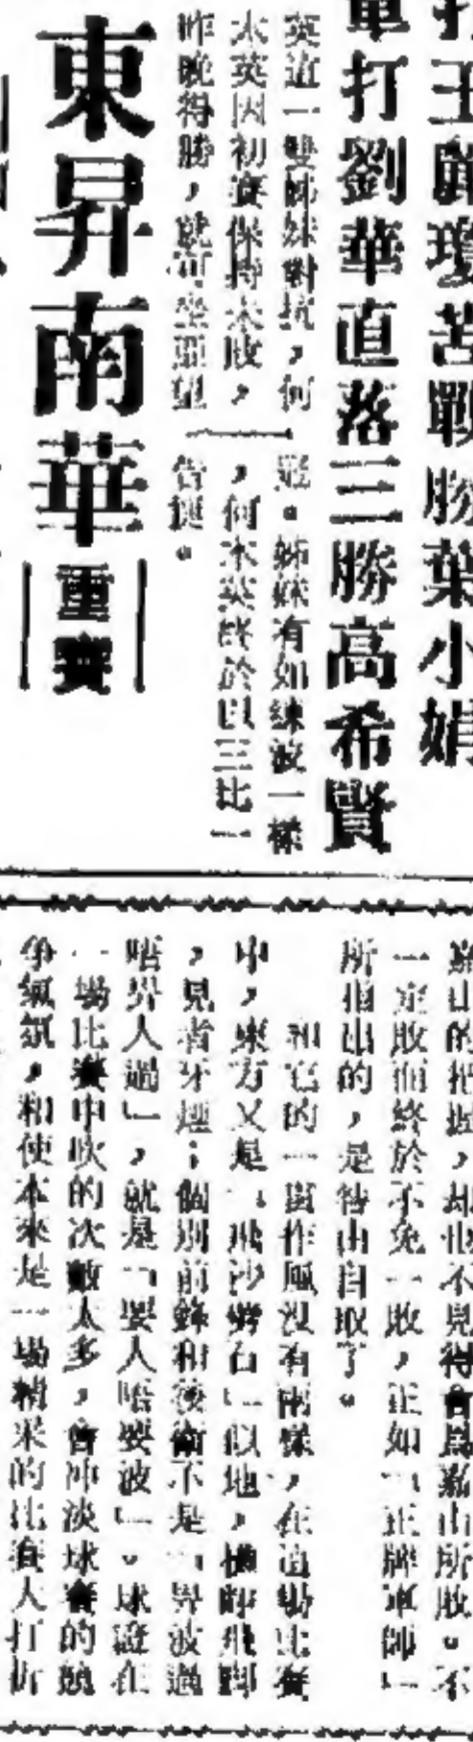 打王麗瓊苦戰勝葉小娟
單打劉華直落三勝高希賢
英這一雙姊妹對抗，何
木英因初賽保持未敗，
昨晚得勝，就可坐亞望
冠。姊妹有如練波一樣
，何木英終於以三比一
告捷。
東昇南華
重賽
嘉山的把握，却也不見得會爲嘉山所敗。不
一定敗而終於不免一敗，正如「正牌軍師」
所指出的，是咎由自取了。
和它的一貫作風沒有兩樣，在這場比賽
中，東方又是「飛沙走石」似地，橫蹄飛脚
，見者牙煙；個別前鋒和後衛不是「畀波過
唔畀人過」，就是「要人唔要波」。球證在
一場比賽中吹的次數太多，會冲淡球賽的競
爭氣氛，和使本來是一場精釆的比賽大打折